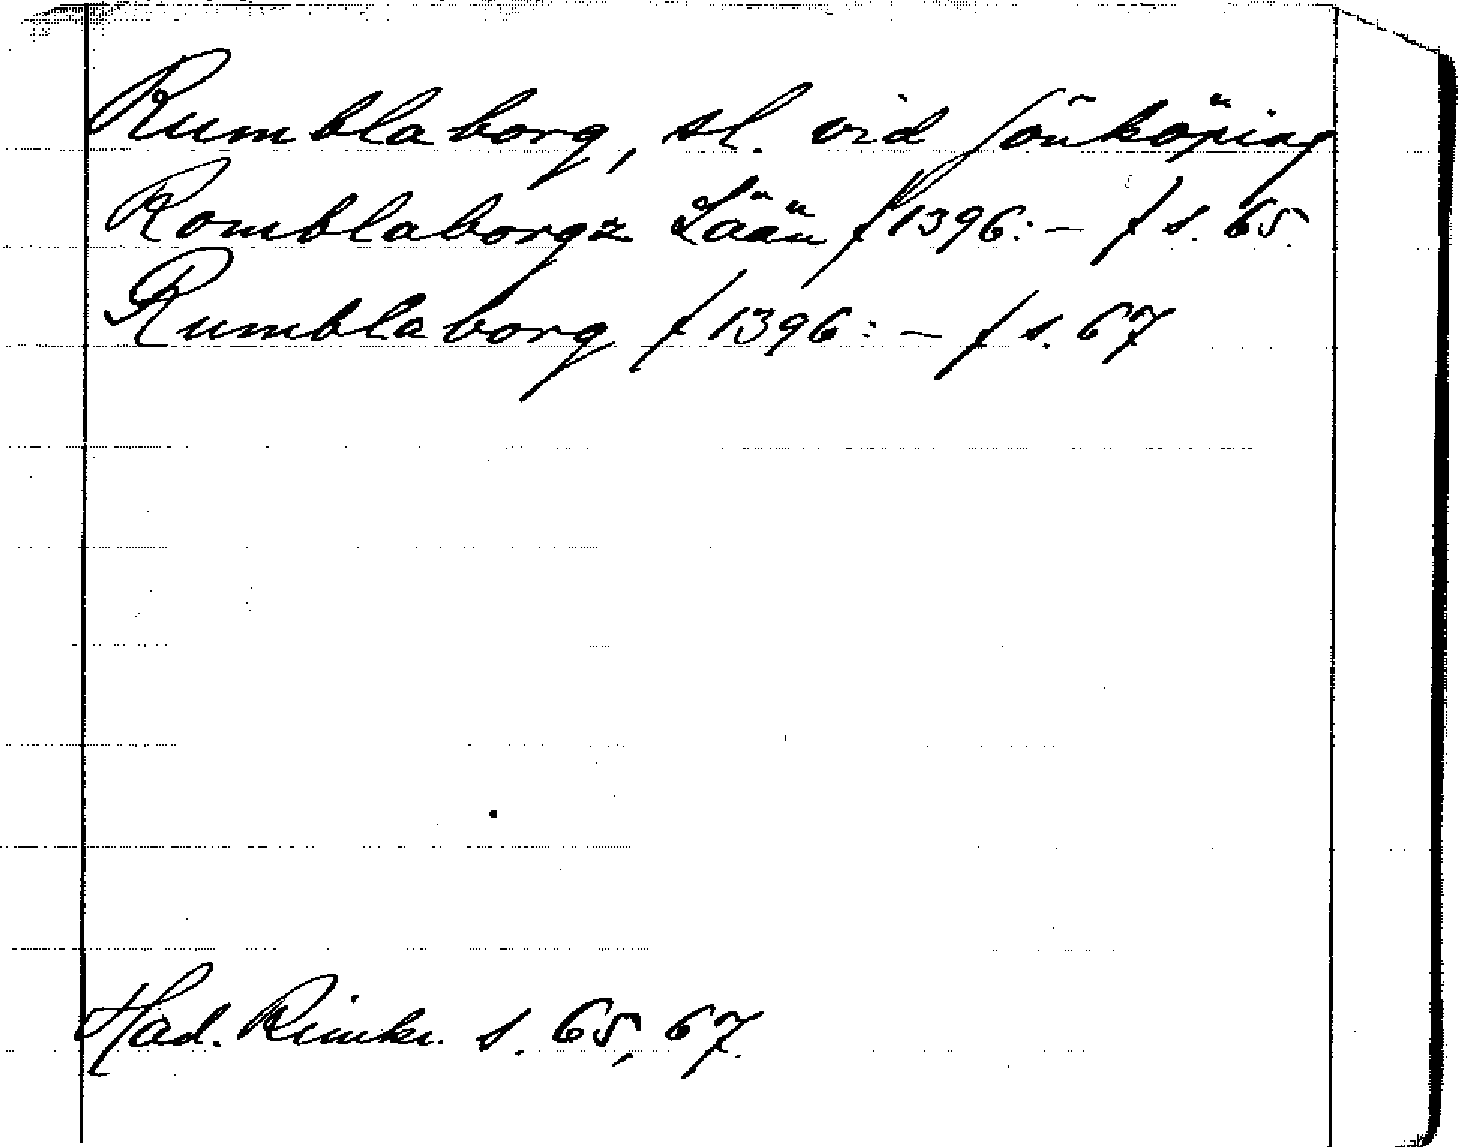 Rumblaborg, sl. vid Jönköping
Romblaborgz Lään /1396:- / s. 65.
Rumblaborg /1396:- / s. 67
Had. Rimkr. s. 65, 67.